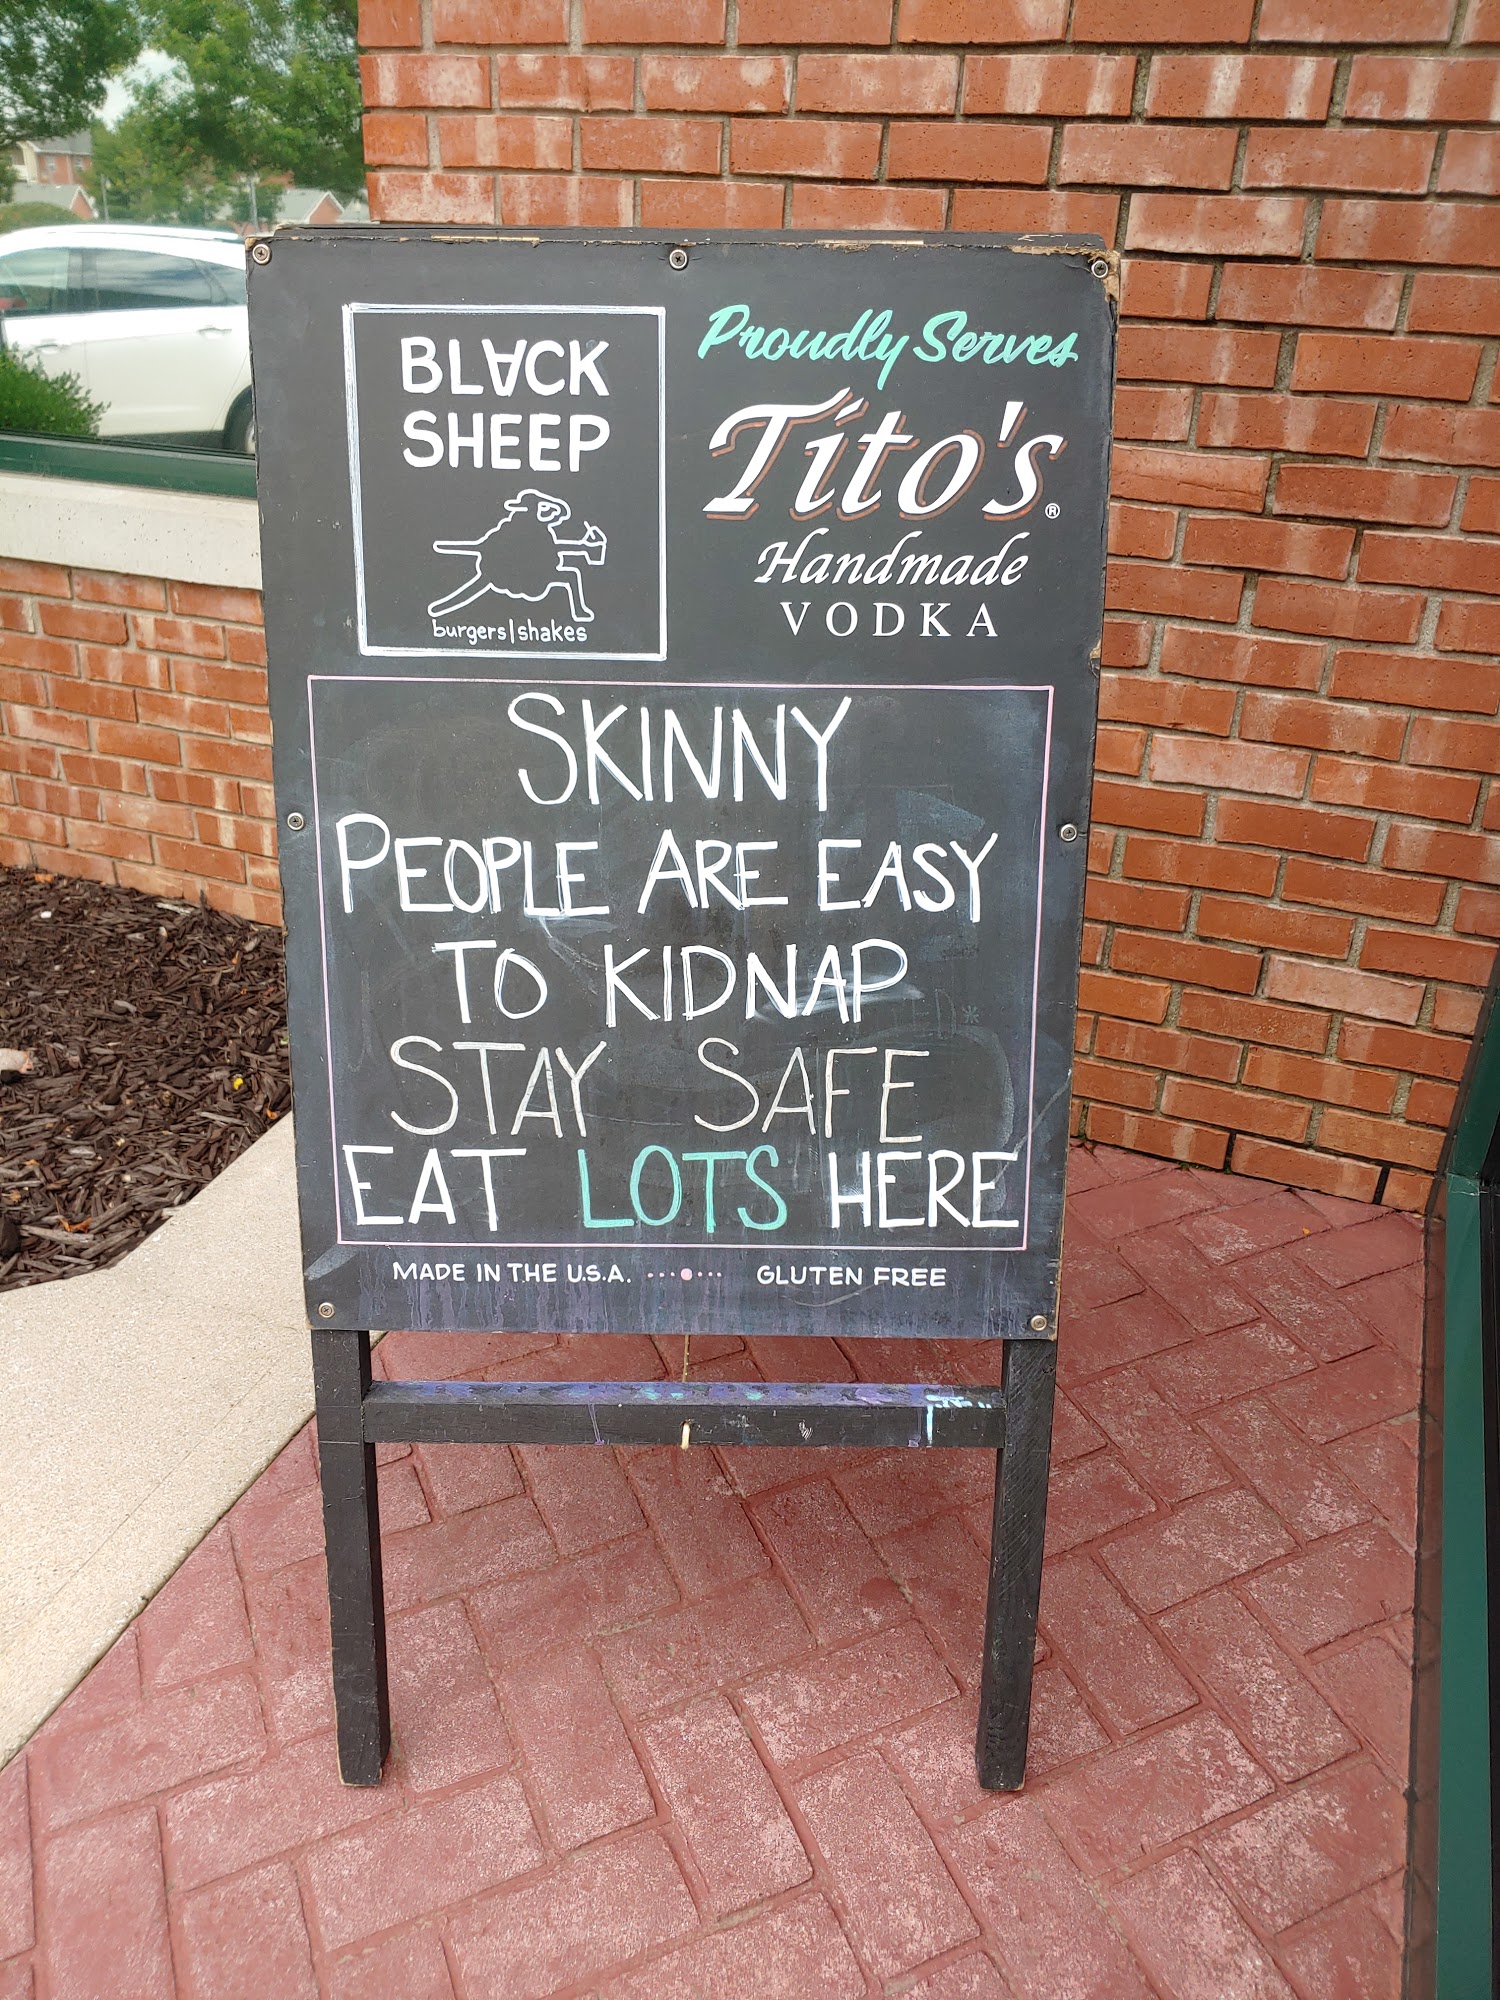 BLACK
SHEEP
burgers|shakes
Proudly Serves
Tito's®
Handmade
VODKA
SKINNY
PEOPLE ARE EASY
TO KIDNAP
STAY SAFE
EAT LOTS HERE
MADE IN THE U.S.A. GLUTEN FREE